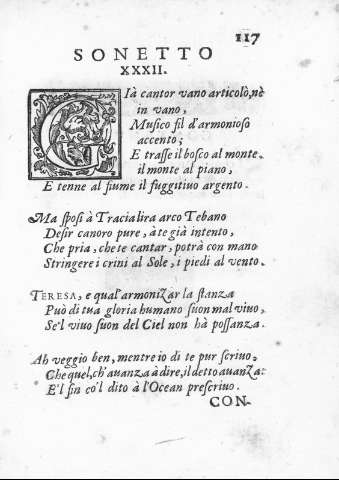 117
SONETTO
XXXII.
Già cantor vano articolò, nè
in vano,
Musico fil d'armonioso
accento;
E trasse il bosco al monte,
il monte al piano,
E tenne al fiume il fuggitiuo argento.
Ma sposi à Tracia lira arco Tebano
Desir canoro pure, à te già intento,
Che pria, che te cantar, potrà con mano
Stringere i crini al Sole, i piedi al vento.
TERESA, e qual' armonizar la stanza
Può di tua gloria humano suon mal viuo,
Se'l viuo suon del Ciel non hà possanza.
Ah veggio ben, mentre io di te pur scriuo,
Che quel, ch'auanza à dire, il detto auanza:
E'l fin co'l dito à l'Ocean prescriuo.
CON-